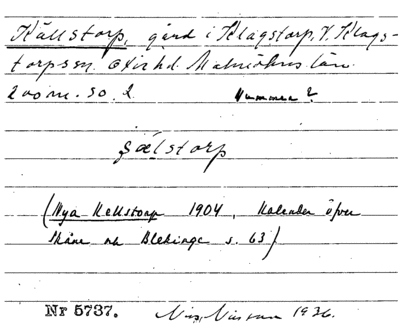 Källstorp, gård i Klagstorp, V. Klags-
torps sn. Oxie hd. Malmöhus län.
200 m. SO. 2. Nummer?
sælstorp
(Nya Kellstorp 1904, Kalender öfver
Skåne och Blekinge s. 63)
Nr 5737. Nils Nilsson 1936.